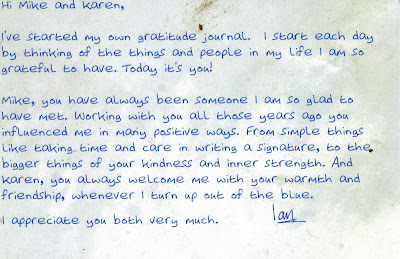 Hi Mike and Karen,
I've started my own gratitude journal. I start each day
by thinking of the things and people in my life I am so
grateful to have. Today it's you!
Mike, you have always been someone I am so glad to
have met. Working with you all those years ago you
influenced me in many positive ways. From simple things
like taking time and care in writing a signature, to the
bigger things of your kindness and inner strength. And
Karen, you always welcome me with your warmth and
friendship, whenever I turn up out of the blue.
I appreciate you both very much. Ian